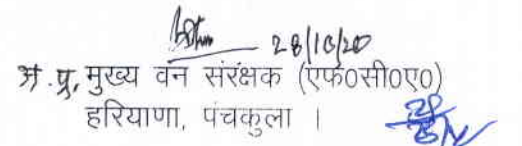 28/10/20
अ.प्र. मुख्य वन संरक्षक (एफ0सी0ए0)
हरियाणा, पंचकुला ।